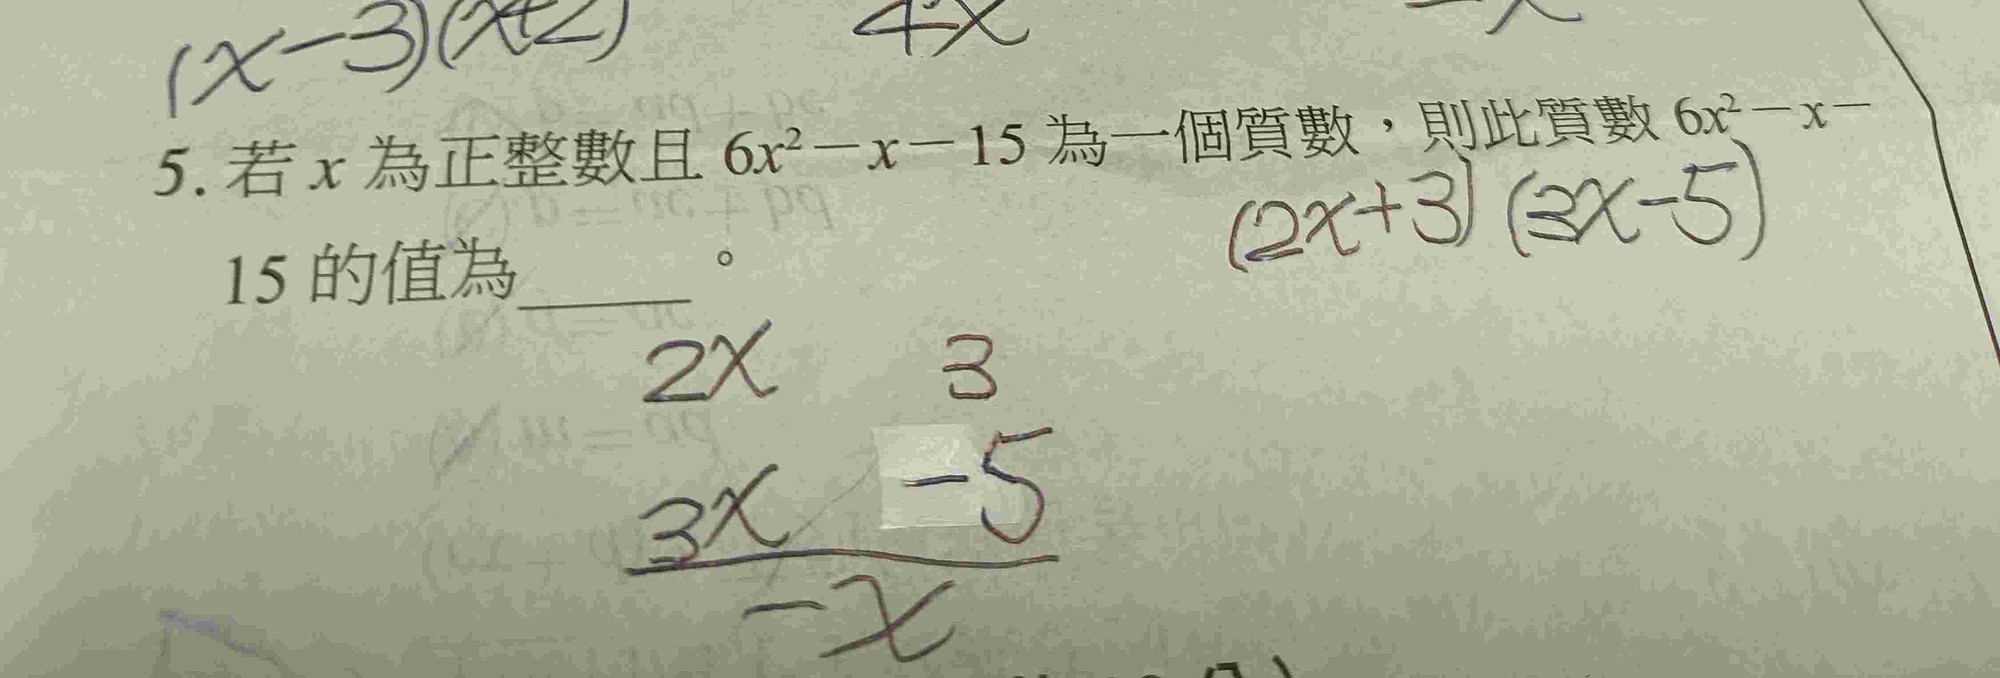 (x-3)(x+2) 4x -x
5. 若 x 為正整數且 6x²-x-15 為一個質數，則此質數 6x²-x-
(2x+3)(3x-5)
15 的值為_____。
2x 3
3x -5
-x